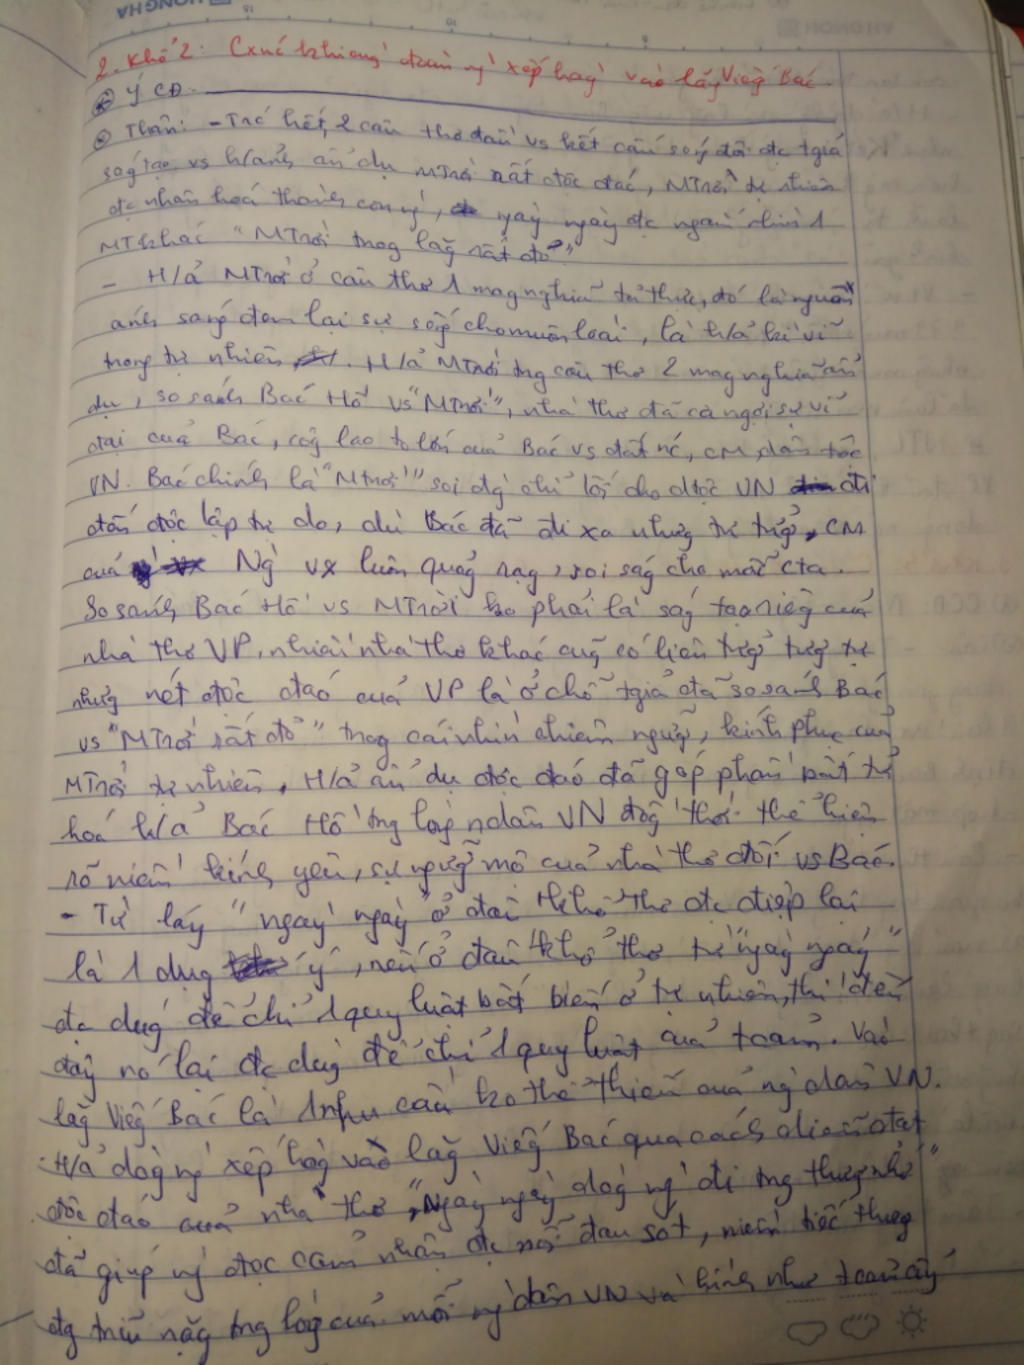 HONGHA
2. Khổ 2: Cxúc khi đứng trước ng` xếp hàg vào lăg Viếg Bác.
* Ý CĐ.
* Thân: - Trc hết, 2 câu thơ đầu vs kết cấu sog đôi đc tgiả
sag tạo vs h/ảnh ẩn dụ MTrời rất độc đáo, MTrời tự nhiên
đc nhân hoá thành con ng`, ngày ngày đc ngắm nhìn 1
MT khác "MTrời trog lăg rất đỏ"
- H/ả MTrời ở câu thơ 1 mag nghĩa tả thực, đó là nguồn
ánh sáng đem lại sự sốg cho muôn loài, là h/ả kì vĩ
trong tự nhiên. H/ả MTrời trg câu thơ 2 mag nghĩa ẩn
dụ, so sánh Bác Hồ vs "MTrời", nhà thơ đã ca ngợi sự vĩ
đại của Bác, côg lao to lớn của Bác vs đất nc, CM, dân tộc
VN. Bác chính là "MTrời" soi đg chỉ lối cho dtộc VN đi
đến độc lập tự do, dù Bác đã đi xa nhưg tư tưởg, CM
của Ng` vx luôn quảg rạg, soi ság cho mãi cta.
So sánh Bác Hồ vs MTrời ko phải là ság tạo riêg của
nhà thơ VP, nhiều nhà thơ khác cug~ có liên tưởg tươg tự
nhưg nét độc đáo của VP là ở chỗ tgiả đã so sánh Bác
vs "MTrời rất đỏ" trog cái nhìn chiêm ngưỡg, kính phục của
MTrời tự nhiên. H/ả ẩn dụ độc đáo đã góp phần bất tử
hoá h/ả Bác Hồ trg lòg ndân VN đồg thời thể hiện
rõ niềm kính yêu, sự ngưỡg mộ của nhà thơ đối vs Bác.
- Từ láy "ngày ngày" ở đầu khổ thơ đc điệp lại
là 1 dụg ý, nếu ở đầu khổ thơ từ "ngày ngày"
đc dùg để chỉ 1 quy luật bất biến ở tự nhiên, thì đến
đây nó lại đc dùg để chỉ 1 quy luật của t/cảm. Vào
lăg Viếg Bác là 1 nhu cầu ko thể thiếu của ng` dân VN.
H/ả dòg ng` xếp hàg vào lăg Viếg Bác qua cách diễn đạt
độc đáo của nhà thơ, "Ngày ngày dòg ng` đi trg thươg nhớ"
đã giúp ng` đọc cảm nhận đc nỗi đau xót, niềm tiếc thươg
đg trĩu nặg trg lòg của mỗi ng` dân VN và hình như t/cảm ấy